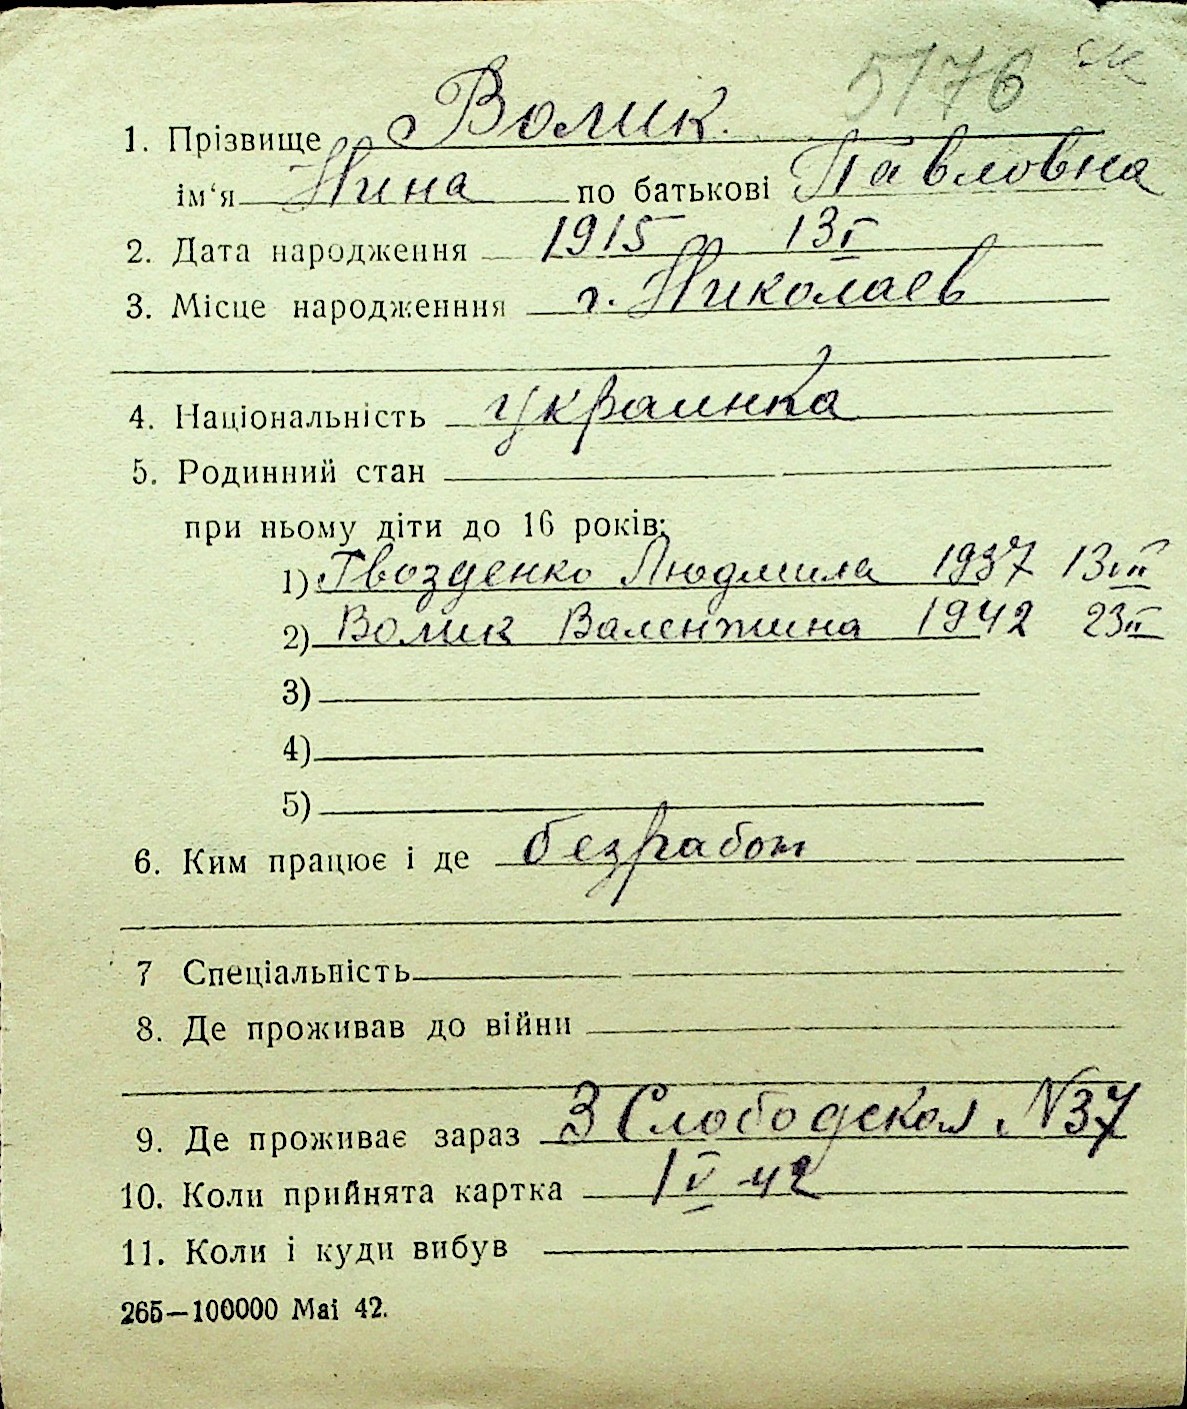 5176
1. Прізвище Волик
ім‘я Нина по батькові Павловна
2. Дата народження 1915 13 I
3. Місце народженння г. Николаев
4. Національність украинка
5. Родинний стан
при ньому діти до 16 років:
1) Гвозденко Людмила 1937 13 III
2) Волик Валентина 1942 23 II
3)
4)
5)
6. Ким працює і де безработ
7 Спеціальність
8. Де проживав до війни
9. Де проживає зараз 3 Слободская N37
10. Коли прийнята картка 1 V 42
11. Коли і куди вибув
265—100000 Mai 42.